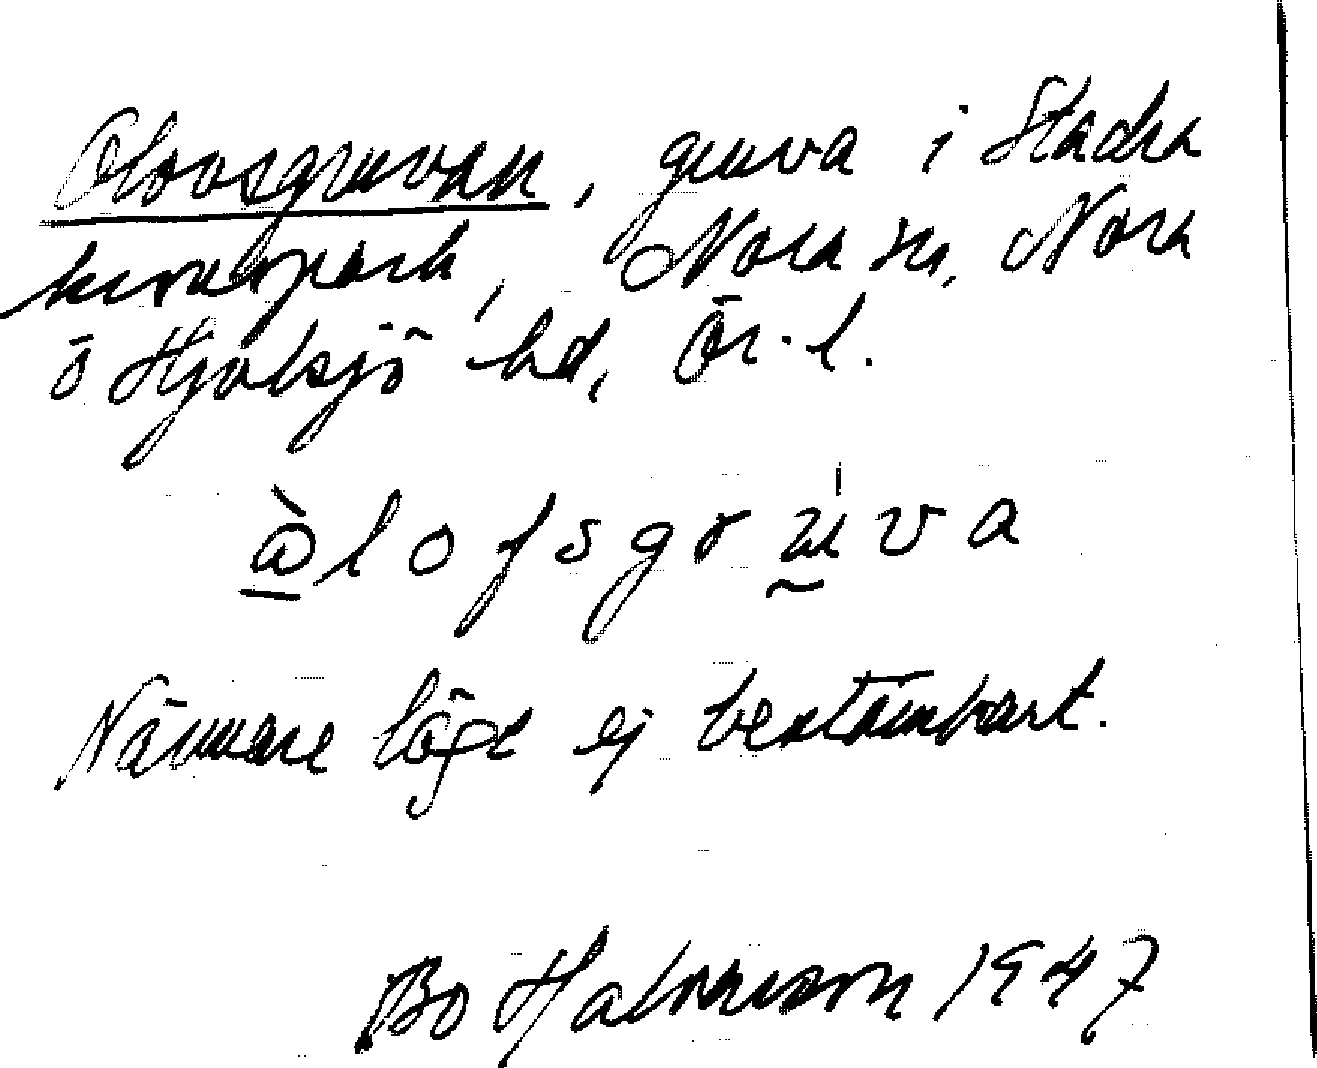 Olovsgruvan, gruva i Stadra
kronopark, Nora sn, Nora
o Hjulsjö hd, Ör. l.
ålofsgruva
Närmare läge ej bestämbart.
Bo 1947